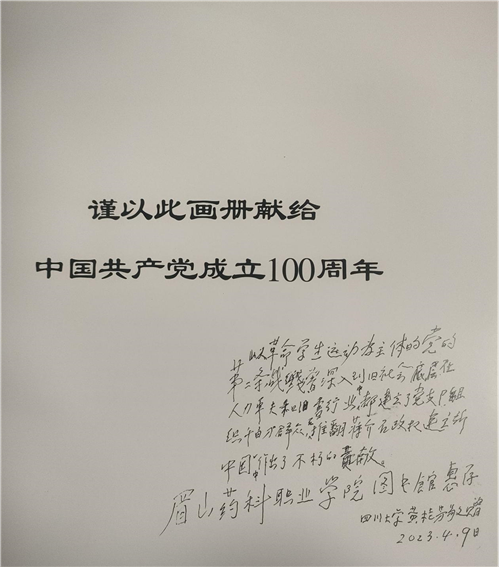 谨以此画册献给
中国共产党成立100周年
以革命学生运动为主体的党的
第二条战线曾深入到旧社会底层在
人力车夫和旧 行业中都建立了党支P组
织千百万群众 推翻蒋介石政权建立新
中国作出了不朽的贡献。
眉山药科职业学院图书馆惠存
四川大学黄桂芳敬赠
2023.4.9日